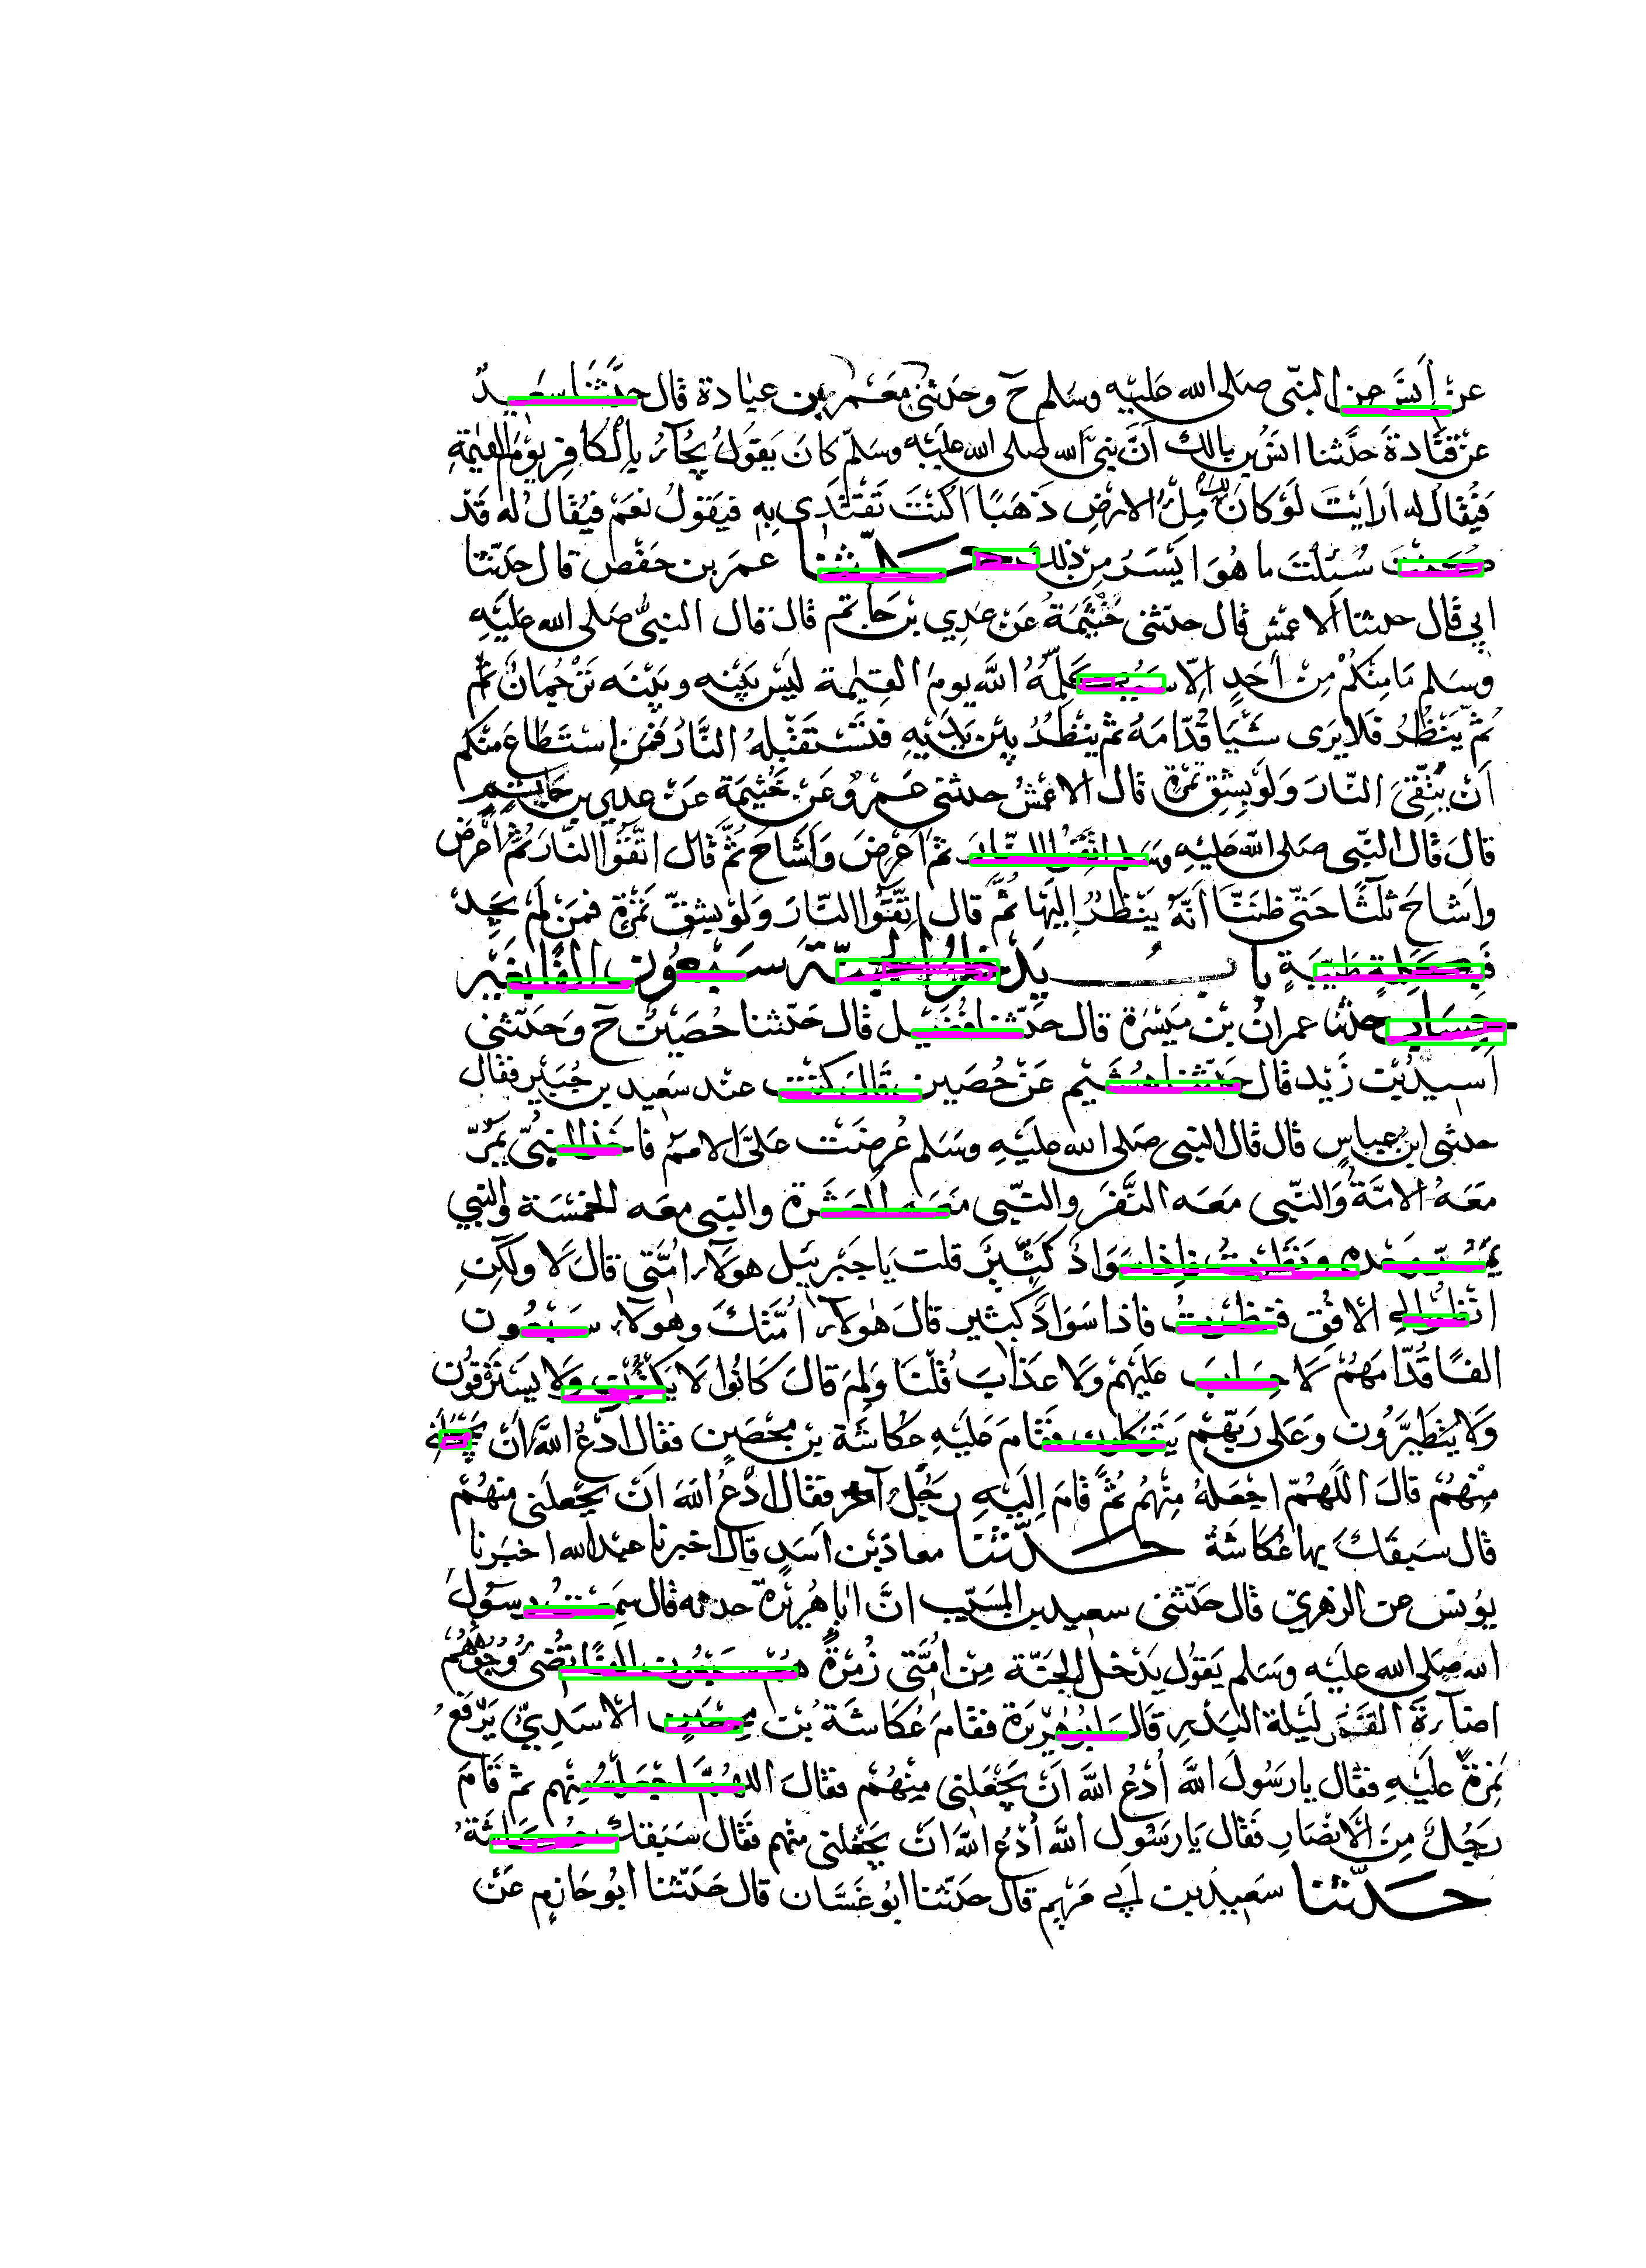 عن أنس عن النبي صلى الله عليه وسلم ح وحدثني معمر بن عبادة قال حدثنا سعيد
عن قتادة حدثنا انس بن مالك أن نبي الله صلى الله عليه وسلم كان يقول يجاء بالكافر يوم القيمة
فيقال له ارايت لو كان لك ملء الارض ذهبا اكنت تفتدى به فيقول نعم فيقال له قد
كنت سئلت ما هو ايسر من ذلك حدثنا عمر بن حفص قال حدثنا
ابي قال حدثنا الاعمش قال حدثني خيثمة عن عدي بن حاتم قال قال النبي صلى الله عليه
وسلم ما منكم من أحد الا سيكلمه الله يوم القيمة ليس بينه وبينه ترجمان ثم
ثم ينظر فلا يرى شيا قدامه ثم ينظر بين يديه فتستقبله النار فمن استطاع منكم
أن يتقى النار ولو بشق تمرة قال الاعمش حدثني عمرو عن خيثمة عن عدي بن حاتم
قال قال النبي صلى الله عليه وسلم اتقوا النار ثم اعرض وأشاح ثم قال اتقوا النار ثم أعرض
واشاح ثلثا حتى ظننا أنه ينظر إليها ثم قال اتقوا النار ولو بشق تمرة فمن لم يجد
فبكلمة طيبة باب يدخل الجنة سبعون الفا بغير
حساب حدثنا عمران بن ميسرة قال حدثنا فضيل قال حدثنا حصين ح وحدثني
اسيد بن زيد قال حدثنا هشيم عن حصين قال كنت عند سعيد بن جبير فقال
حدثني ابن عباس قال قال النبي صلى الله عليه وسلم عرضت على الامم فاخذ النبي يمر
معه الامة والنبي معه النفر والنبي معه العشرة والنبي معه الخمسة والنبي
يمر وحده ونظرت فاذا سواد كثير قلت يا جبريل هولاء امتي قال لا ولكن
انظر الى الافق فنظرت فاذا سواد كثير قال هولاء امتك وهولاء سبعون
الفا قدامهم لا حساب عليهم ولا عذاب قلت ولم قال كانوا لا يكتوون ولا يسترقون
ولا يتطيرون وعلى ربهم يتوكلون فقام عليه عكاشة بن محصن فقال ادع الله أن يجعلني
منهم قال اللهم اجعله منهم ثم قام إليه رجل آخر فقال ادع الله ان يجعلني منهم
قال سبقك بها عكاشة حدثنا معاذ بن اسد قال اخبرنا عبد الله اخبرنا
يونس عن الزهري قال حدثني سعيد بن المسيب ان ابا هريرة حدثه قال سمعت رسول
الله صلى الله عليه وسلم يقول يدخل الجنة من امتي زمرة هم سبعون الفا تضئ وجوههم
اضاءة القمر ليلة البدر قال ابو هريرة فقام عكاشة بن محصن الاسدي يرفع
نمرة عليه فقال يا رسول الله أدع الله ان يجعلني منهم فقال اللهم اجعله منهم ثم قام
رجل من الانصار فقال يا رسول الله أدع الله ان يجعلني منهم فقال سبقك عكاشة
حدثنا سعيد بن ابي مريم قال حدثنا ابو غسان قال حدثنا ابو حازم عن